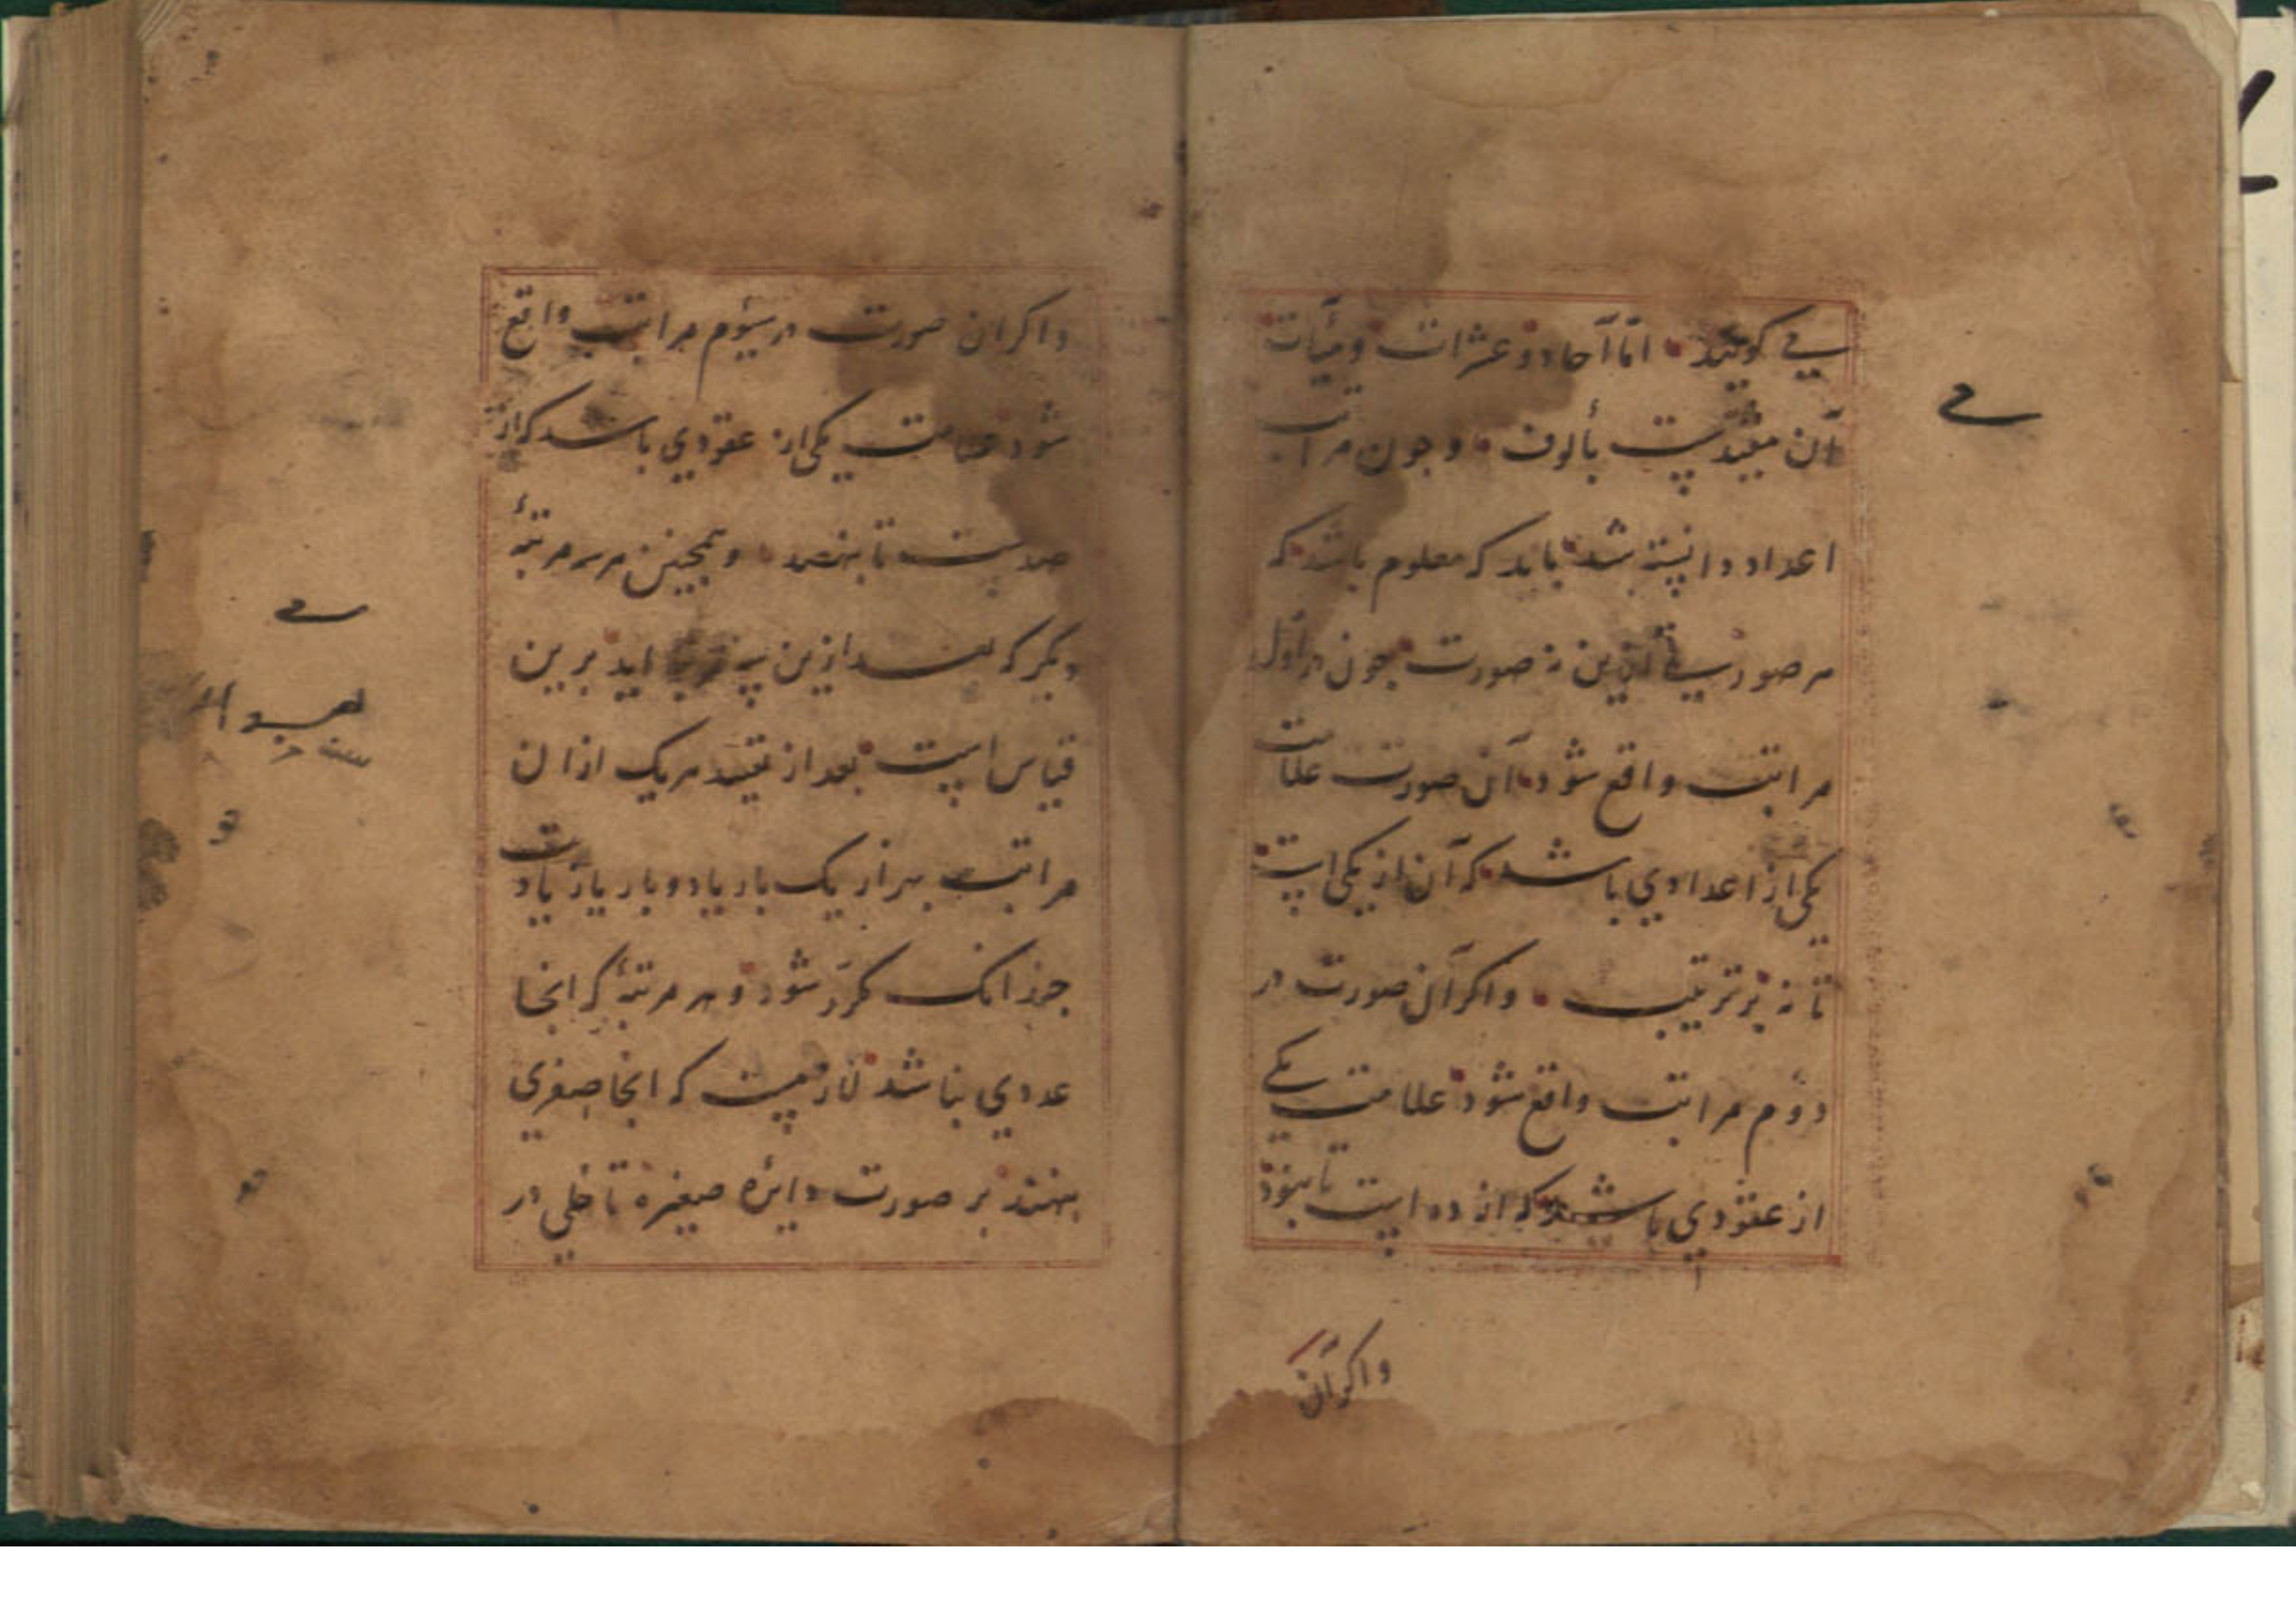 می کویند اما آحاد و عشرات و مآت
آن مقیدست بألوف و جون مراتب
اعداد دانسته شد باید که معلوم باشد که
هر صورتی ازین نه صورت جون در اول
مراتب واقع شود آن صورت علامت
یکی از اعدادی باشد که آن از یکی است
تا نه بر ترتیب واکر آن صورت در
دوم مراتب واقع شود علامت یکی
از عقودی باشد که از ده است تا بنود
واکر آن
واکر ان صورت در سیوم مراتب واقع
شود علامت یکی از عقودی باشد که از
صدست تا بنهصد و همجنین هر سه مرتبهٔ
دیکر که بعد ازین سه مرتبه اید برین
قیاس است بعد از تقیید هریک ازان
مراتب بهزار یک بار یا دو بار یا زیادت
جندانک مکرر شود و هر مرتبهٔ که انجا
عددی نباشد لازمست که انجا صفری
بنهند بر صورت دایرهٔ صغیره تا خللی در